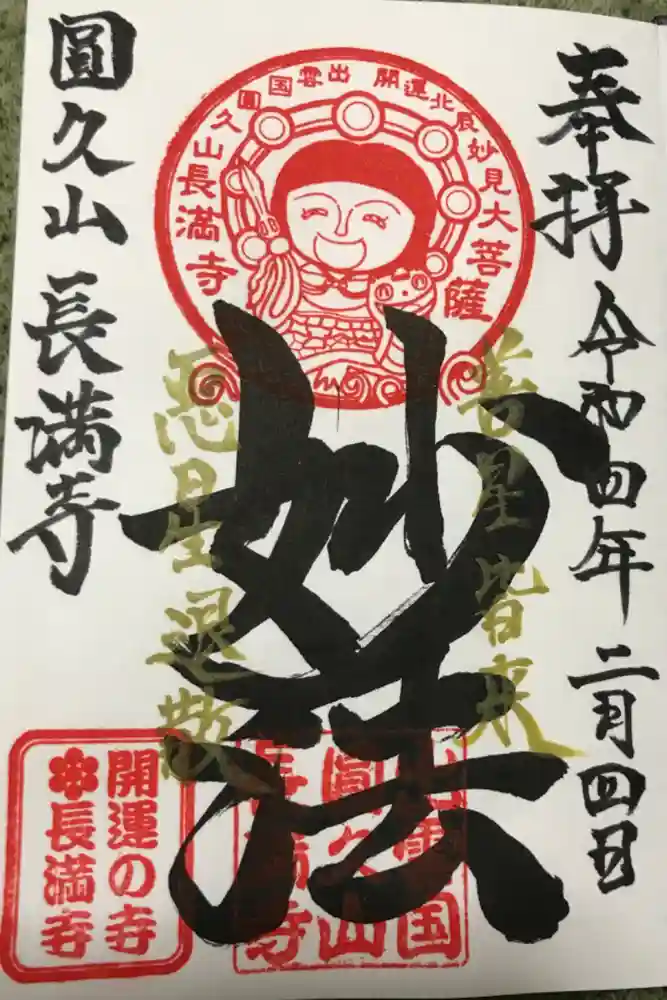 奉拝
令和四年二月四日
出雲国
開運北辰妙見大菩薩
圓久山長満寺
善星皆来
妙法
悪星退散
圓久山
長満寺
出雲国
圓久山
長満寺
開運の寺
長満寺